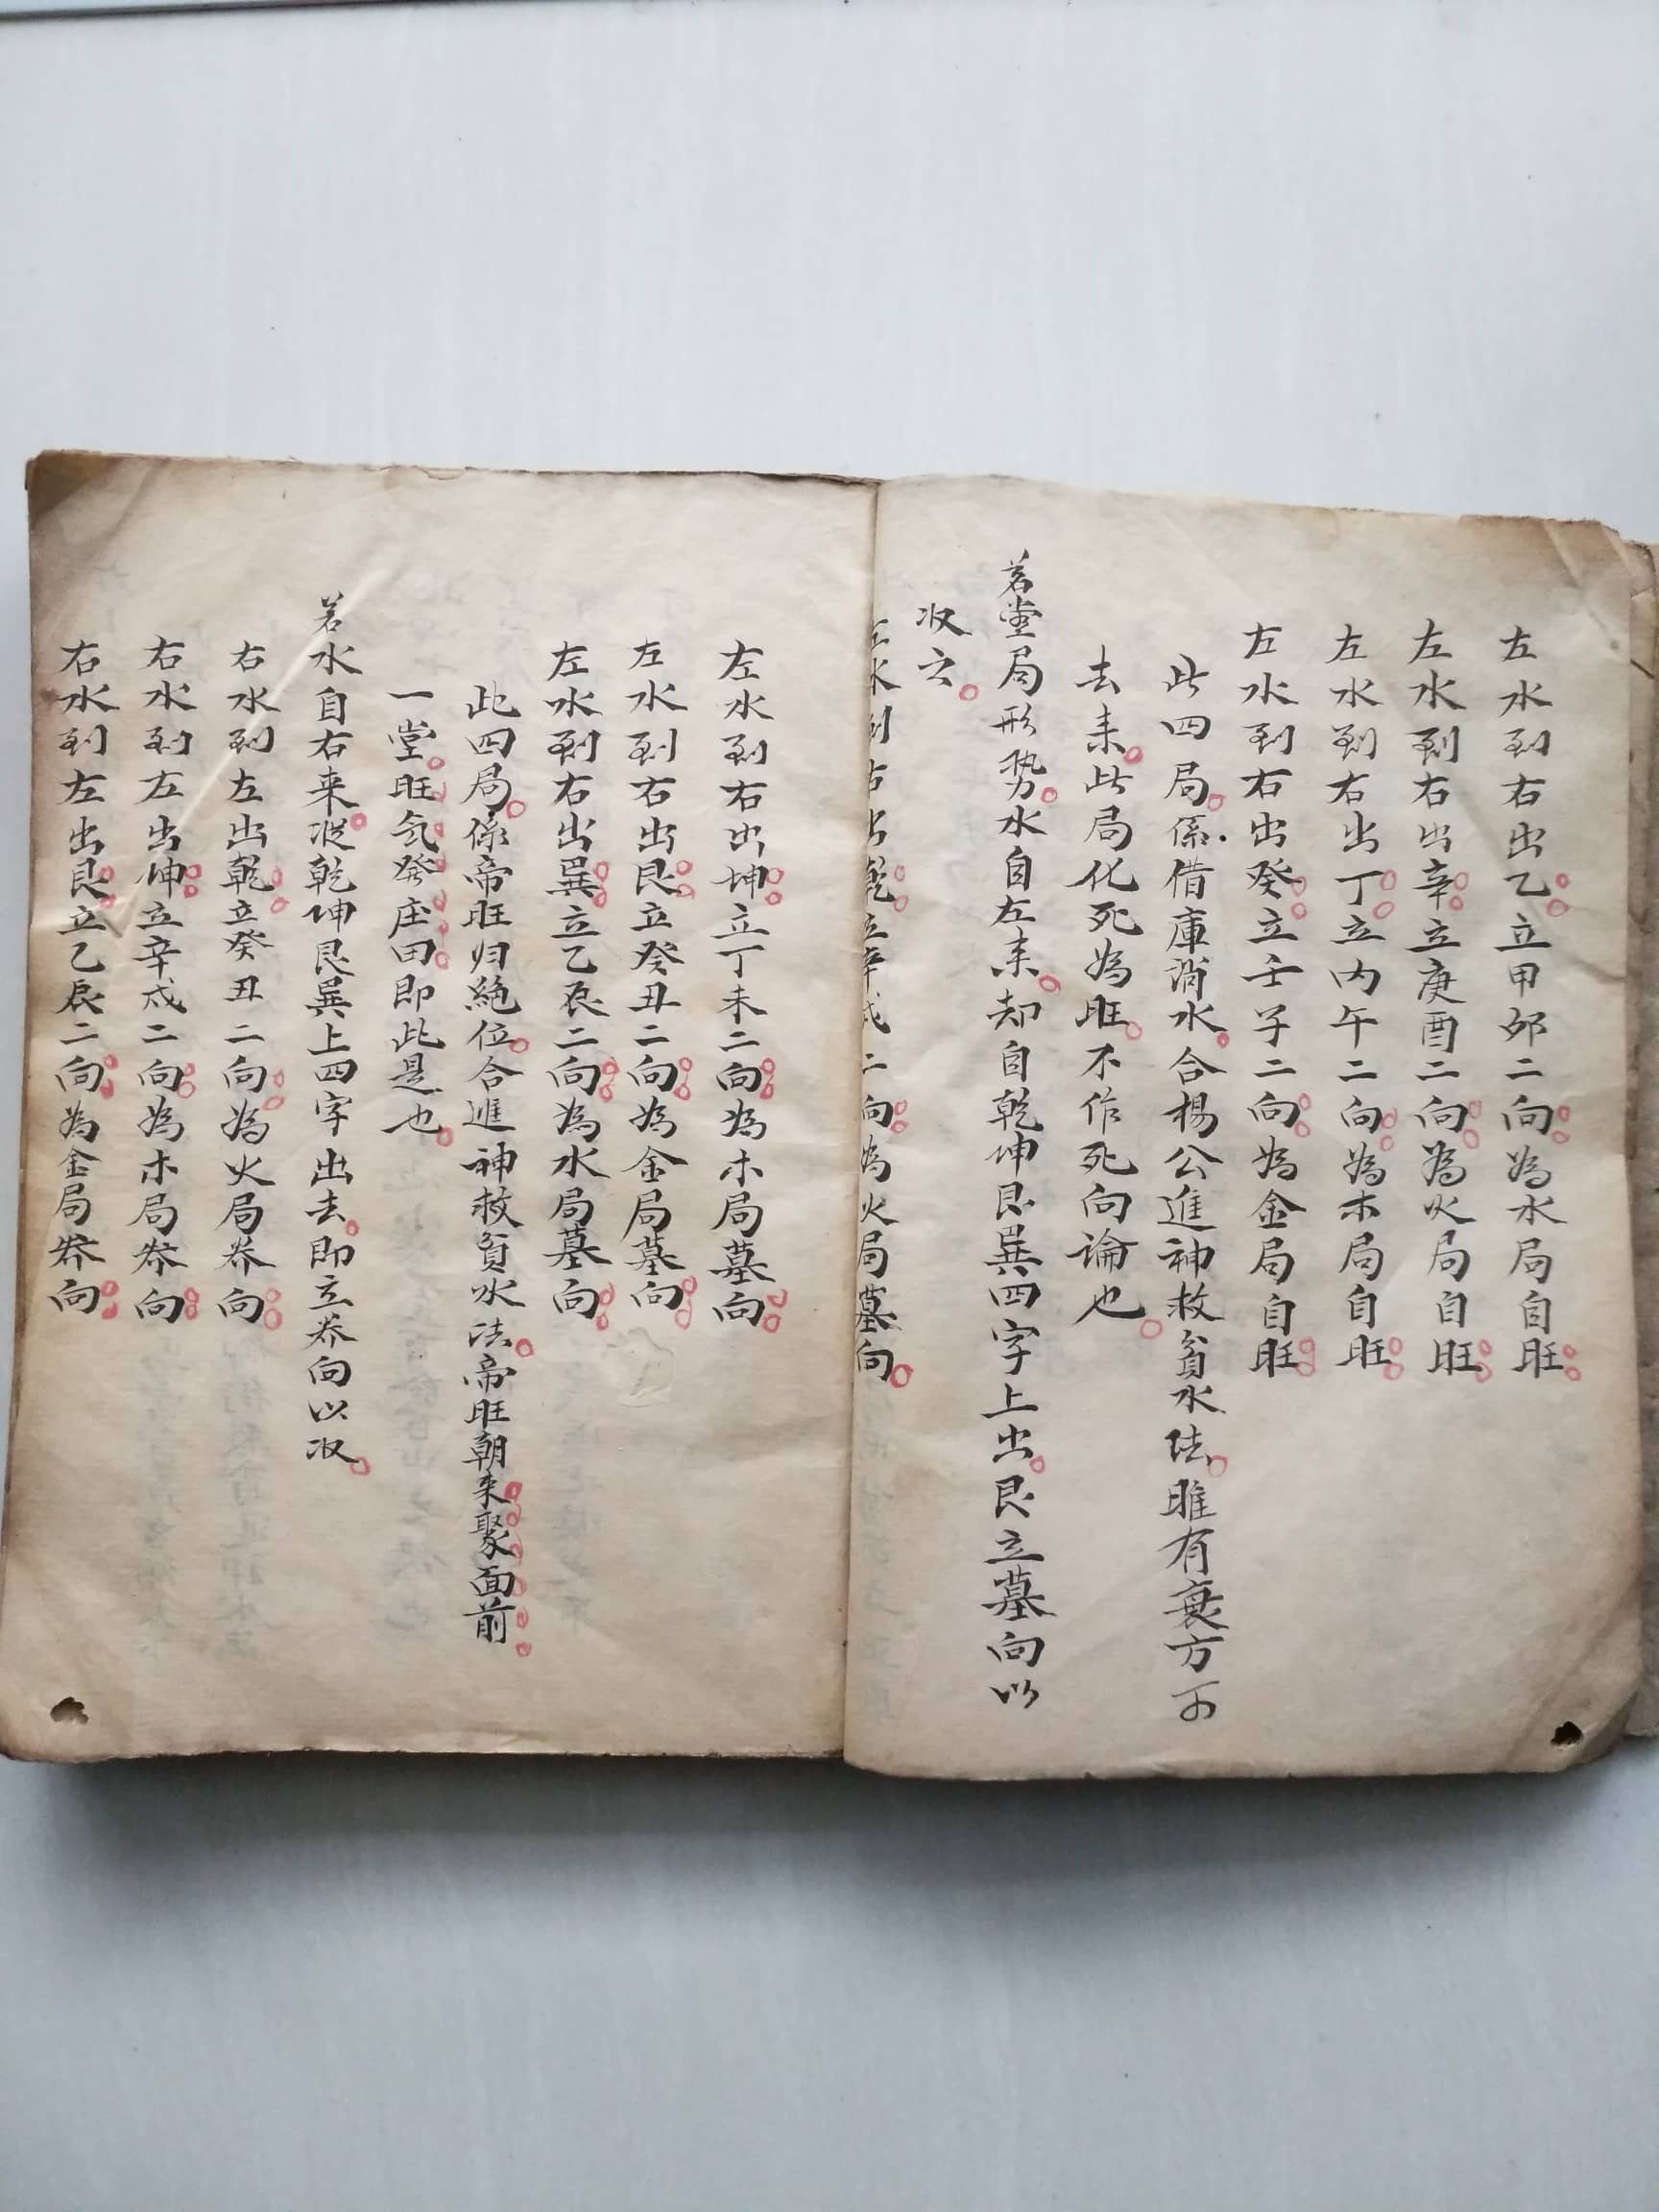 左水到右出乙立甲卯二向為水局自旺
左水到右出辛立庚酉二向為火局自旺
左水到右出丁立丙午二向為木局自旺
左水到右出癸立壬子二向為金局自旺
此四局係借庫消水合楊公進神救貧水法雖有衰方可
去来此局化死為旺不作死向論也
若堂局形势水自左来却自乾坤艮巽四字上出艮立墓向以
収之
左水到右出乾立辛戌二向為火局墓向
左水到右出坤立丁未二向為木局墓向
左水到右出艮立癸丑二向為金局墓向
左水到右出巽立乙辰二向為水局墓向
此四局係帝旺归絶位合進神救貧水法帝旺朝来聚面前
一堂旺氣發庄田即此是也
若水自右来從乾坤艮巽上四字出去即立养向以収
右水到左出乾立癸丑二向為火局养向
右水到左出坤立辛戌二向為木局养向
右水到左出艮立乙辰二向為金局养向